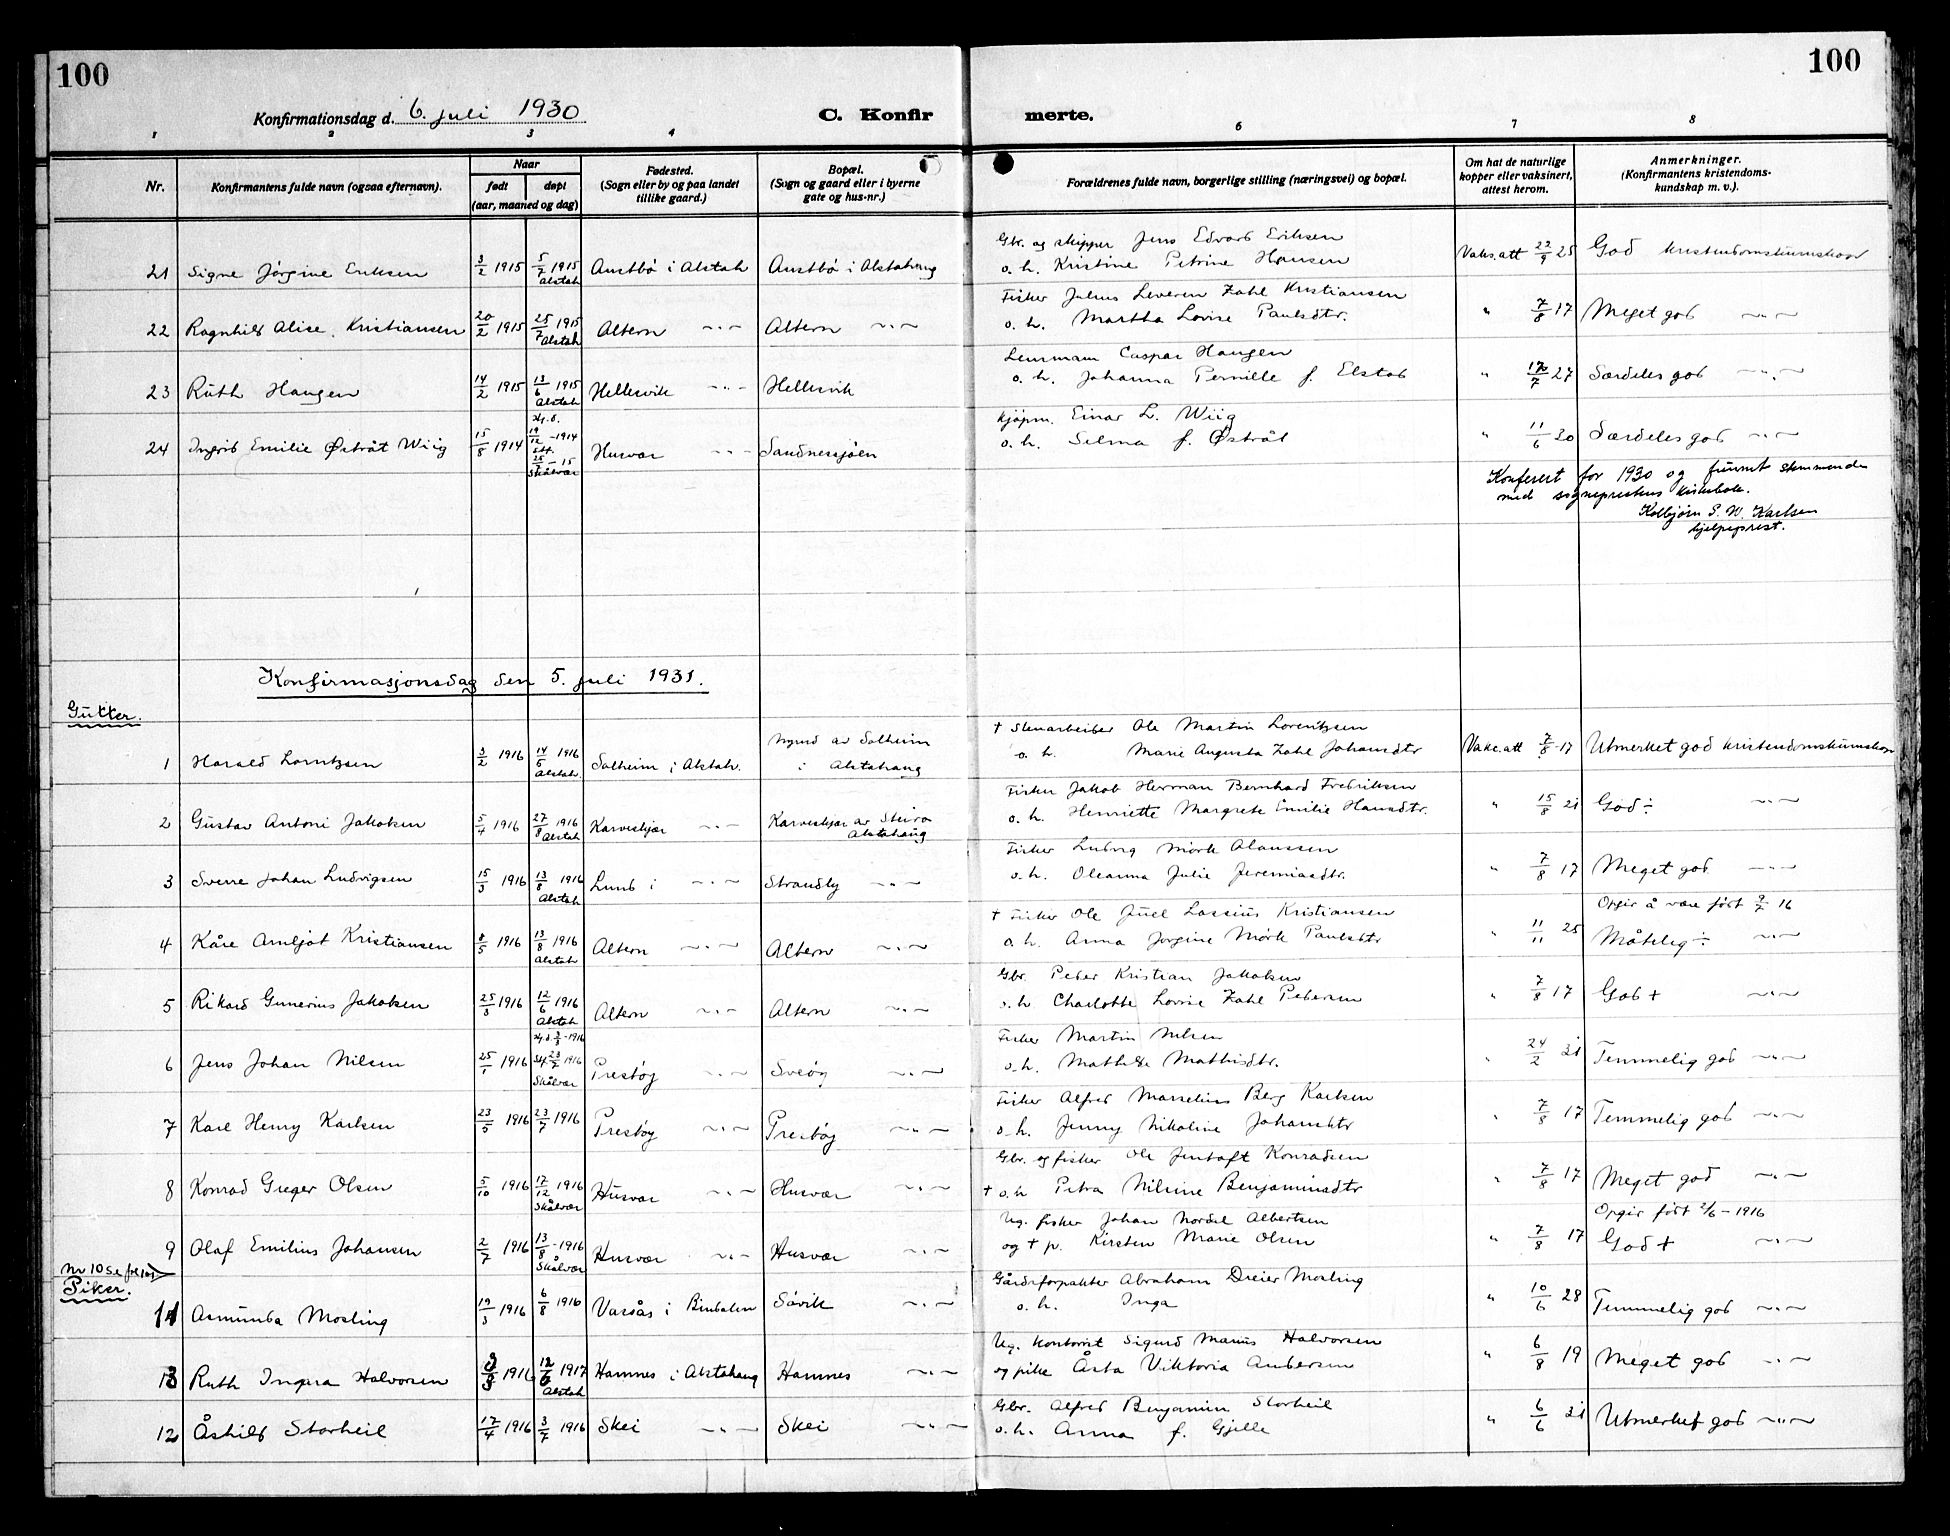 100
100
Konfirmationsdag d. 6. juli 1930
C. Konfirmerte.
1 2 3 4 6 7 8
Nr.
Konfirmantens fulde navn (ogsaa efternavn).
Naar
født
døpt
(aar, maaned og dag)
Fødested.
(Sogn eller by og paa landet
tillike gaard.)
Bopæl.
(Sogn og gaard eller i byerne
gate og hus-nr.)
Forældrenes fulde navn, borgerlige stilling (næringsvei) og bopæl.
Om hat de naturlige
kopper eller vaksinert,
attest herom.
Anmerkninger.
(Konfirmantens kristendoms-
kundskap m. v.).
Gbr. og skipper Jens Edvard Eriksen
21 Signe Jörgine Eriksen 3/2 1915 5/7 1915 Alstah Austbö i Alstah Austbö i Alstahaug o. h. Kristine Petrine Hansen Vaks.att 22/9 25 God kristendomskunnskap
Fisker Julius Severin Zahl Kristiansen
22 Ragnhild Alise Kristiansen 20/2 1915 25/7 1915 Alstah Altern -"- Altern -"- o. h. Martha Lovise Paulsdtr. " 7/8 17 Meget god -"-
Lensmann Caspar Haugen
23 Ruth Haugen 14/2 1915 13/6 1915 Alstah Hellesvik -"- Hellesvik o. h. Johanna Pernille f. Elstad " 7 27 Særdeles god -"-
Kjöpm. Einar L. Wiig
24 Ingrid Emilie Østråt Wiig 15/8 1914 Hj.d. 19/12 - 1914 stf. 25/7 - 15 Skålvær Husvær -"- Sandnessjöen o. h. Selma f. Østråt " 11/6 20 Særdeles god -"-
Konferert for 1930 og funnet stemmende
med sogneprestens kirkebok.
Kolbjörn S. W. Karlsen
hjelpeprest.
Konfirmasjonsdag den 5. juli 1931.
Gutter.
† Stenarbeider Ole Martin Lorentzsen
1 Harald Lorntzsen 3/2 1916 14/5 1916 Alstah. Solheim i Alstah. Nyrud av Solheim i Alstahaug o. h. Marie Augusta Zahl Johansdtr Vaks.att 7/8 - 17 Utmerket god kristendomskunnskap
Fisker Jakob Herman Bernhard Fredriksen
2 Gustav Antoni Jakobsen 5/4 1916 27/8 1916 Alstah Karveskjær -"- Karveskjær av Skeiro Alstahaug o. h. Henriette Margrete Emilie Hansdtr. " 15/8 21 God ÷ -"-
Fisker Ludvig Mörk Olaussen
3 Sverre Johan Ludvigsen 15/3 1916 13/8 1916 Alstah Lund i -"- Strandby -"- o. h. Oleanna Julie Jeremiasdtr. " 7/8 17 Meget god -"-
† Fisker Ole Juel Lassius Kristiansen Opgir å være født 9/7 16
4 Kåre Arnljot Kristiansen 8/5 1916 13/8 1916 Alstah Altern -"- Altern -"- o. h. Anna Jorgine Mörk Paulsdtr " 11/11 25 Måtelig ÷ -"-
Gbr. Peder Kristian Jakobsen
5 Rikard Gunerius Jakobsen 25/3 1916 12/6 1916 Alstah Altern -"- Altern -"- o. h Charlotte Lovise Zahl Pedersen " 7/8 17 God + -"-
Fisker Martin Nilsen
6 Jens Johan Nilsen 25/1 1916 Hj.d. 3/3 - 1916 stf. 23/7 1916 Skålvær Prestöy -"- Sveöy -"- o. h. Mathilde Mathisdtr. " 24/2 21 Temmelig god -"-
Fisker Alfred Marselius Berg Karlsen
7 Karl Henry Karlsen 23/5 1916 23/7 1916 Prestöy -"- Prestöy -"- o. h. Jenny Nikoline Johansdtr " 7/8 17 Temmelig god -"-
Gbr. og fisker Ole Jentoft Konradsen
8 Konrad Greger Olsen 5/10 1916 17/12 1916 Skålvær Husvær -"- Husvær -"- † o. h Petra Nilsine Benjaminsdtr " 7/8 17 Meget god -"-
Ug. fisker Johan Nordel Albertsen Opgir født 2/6 - 1916
9 Olaf Emilius Johansen 2/7 1916 13/8 - 1916 Skålvær Husvær -"- Husvær -"- og † p. Kirsten Marie Olsen " 7/8 17 God + -"-
Nr 10 se fol 101
Piker.
Gårdsforpakter Abraham Dreier Mosling
11 Asmunda Mosling 19/3 1916 6/8 1916 Vassås i Bindalen Sövik -"- o. h. Inga " 10/6 28 Temmelig god -"-
Ug. kontorist Sigurd Marius Halvorsen
13 Ruth Ingara Halvorsen 3 1916 12/6 1917 Alstah Hamnes i Alstahaug Hamnes -"- og pike Åsta Viktoria Andersen " 6/8 19 Meget god -"-
Gbr. Alfred Benjamin Storheil
12 Åshild Storheil 17/4 1916 3/7 1916 Skei -"- Skei -"- o. h. Anna f. Gjelle " 6/6 21 Utmerket god -"-